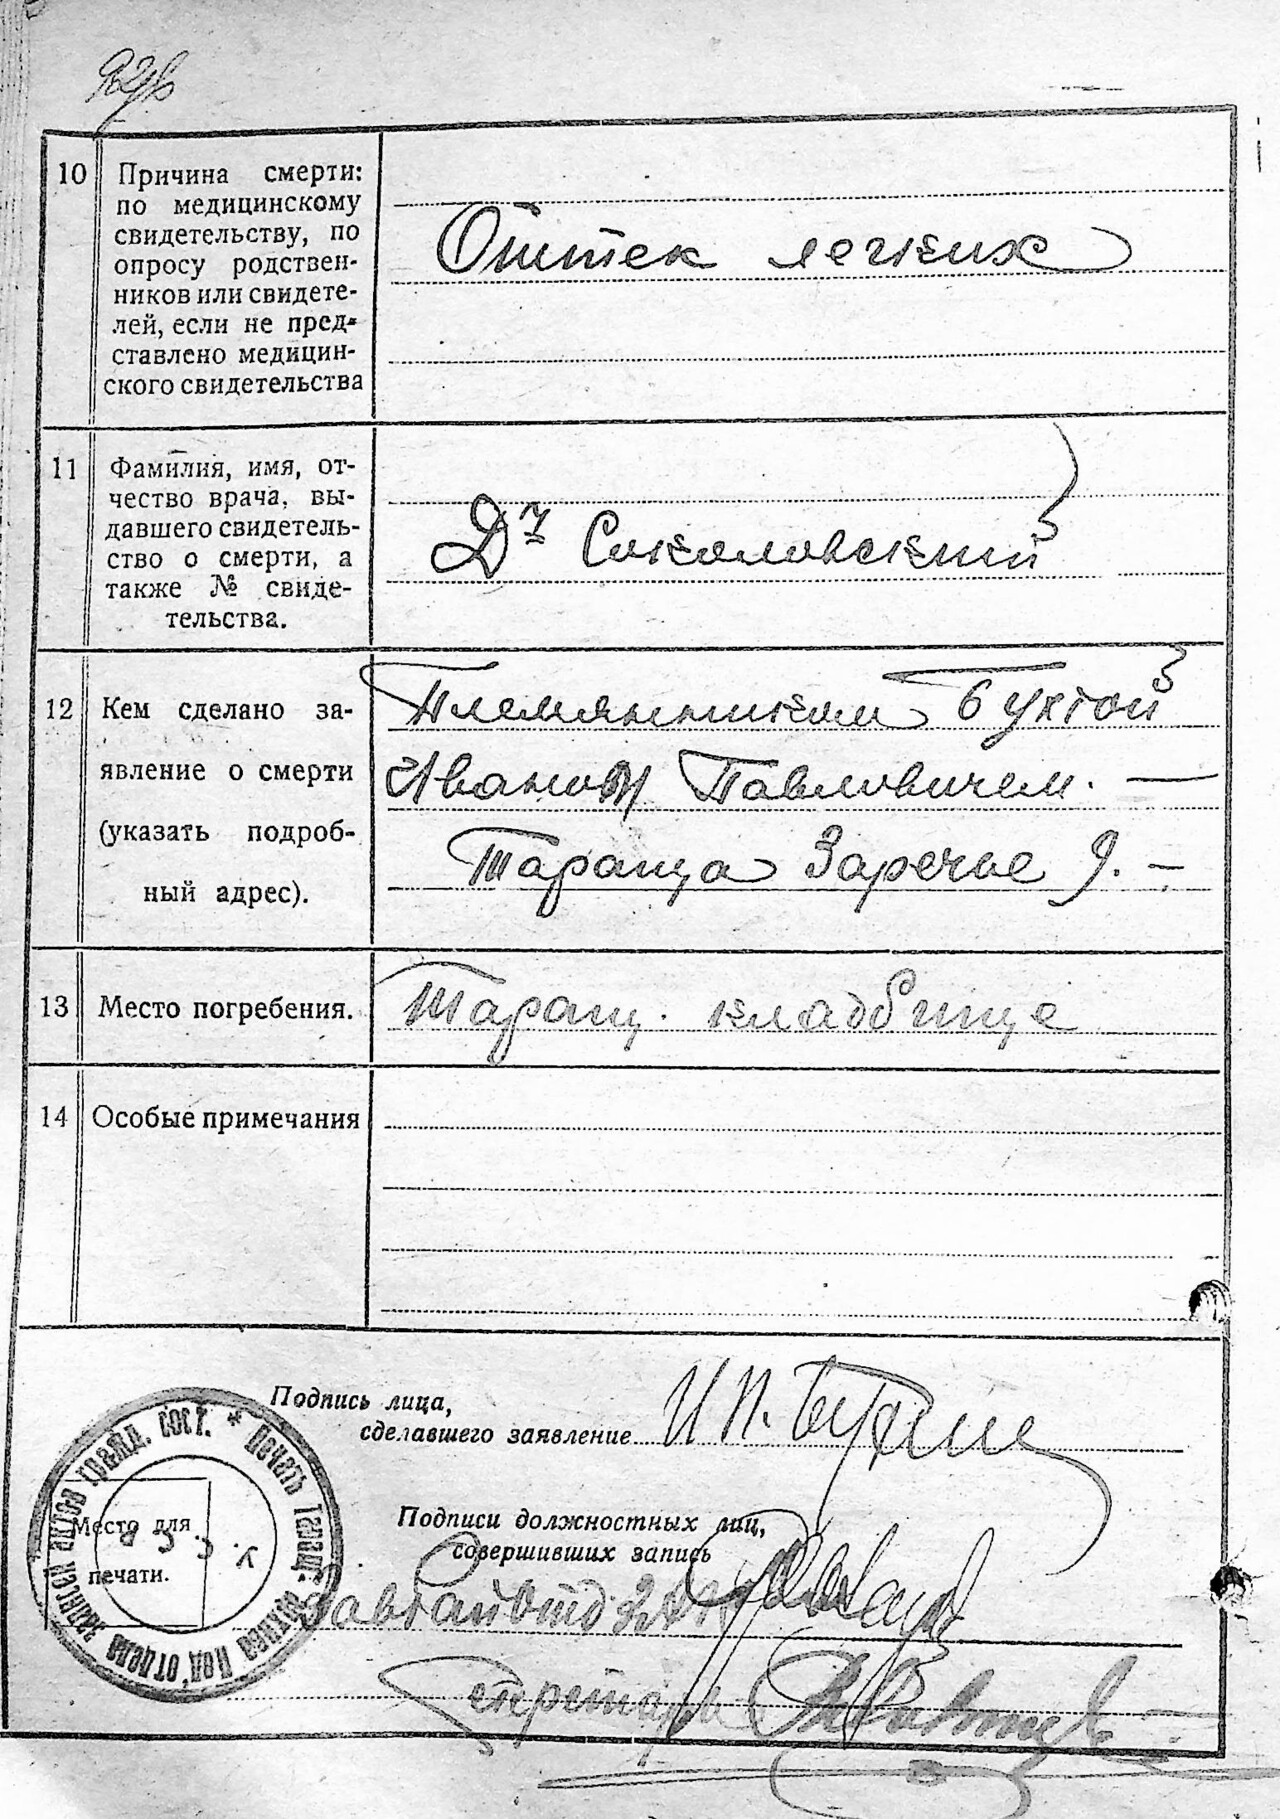 10
Причина смерти:
по медицинскому
свидетельству, по
опросу родствен-
ников или свидете-
лей, если не пред-
ставлено медицин-
ского свидетельства
Оттек легких
11
Фамилия, имя, от-
чество врача, вы-
давшего свидетель-
ство о смерти, а
также № свиде-
тельства.
Соколовский
12
Кем сделано за-
явление о смерти
(указать подроб-
ный адрес).
Племянником Бухтой
Иваном Павловичем. —
Тараща Заречье 9. —
13
Место погребения.
Таращ. кладбище
14
Особые примечания
Подпись лица,
сделавшего заявление
И П.
Подписи должностных лиц,
совершивших запись
Место для
печати.
Секретарь